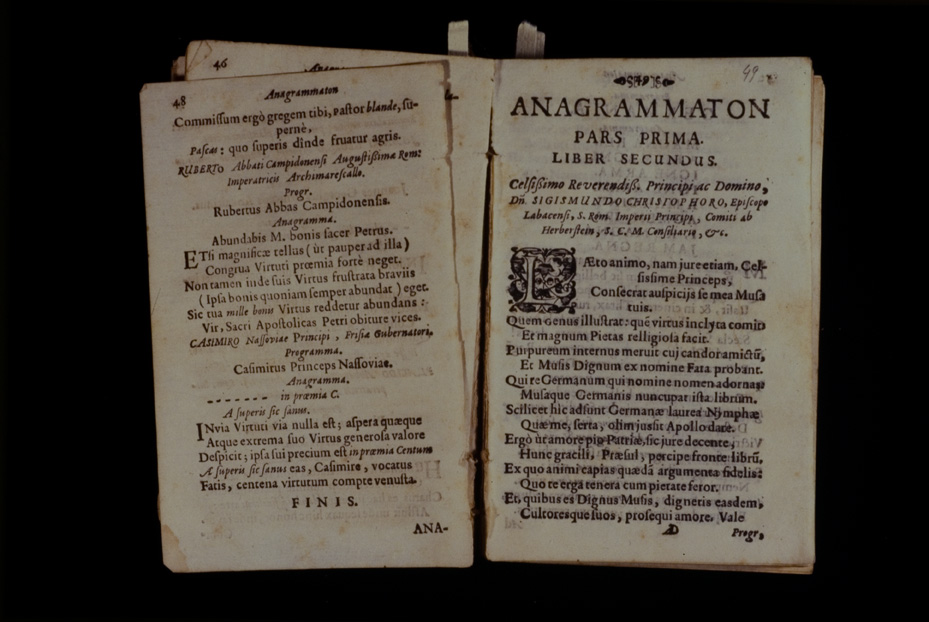 46
48
Anagrammaton
Commissum ergò gregem tibi, Pastor blande, su-
pernè,
Pascas: quo superis dinde fruatur agris.
RUBERTO Abbati Campidonensi Augustissimæ Rom:
Imperatricis Archimarescallo.
Progr.
Rubertus Abbas Campidonensis.
Anagramma.
Abundabis M. bonis sacer Petrus.
ETsi magnificæ tellus (ùt pauper ad illa)
Congrua Virtuti præmia fortè neget.
Non tamen inde suis Virtus frustrata braviis
(Ipsa bonis quoniam semper abundat) eget.
Sic tua mille bonis Virtus reddetur abundans:
Vir, Sacri Apostolicas Petri obiture vices.
CASIMIRO Nassoviæ Principi, Frisiæ Gubernatori.
Programma.
Casimirus Princeps Nassoviæ.
Anagramma.
- - - - - - - in præmia C.
A superis sic sanus.
INvia Virtuti via nulla est; aspera quæque
Atque extrema suo Virtus generosa valore
Despicit; ipsa sui precium est in præmia Centum
A superis sic sanus eas, Casimire, vocatus
Fatis, centena virtutum compte venusta.
FINIS.
ANA-
49
ANAGRAMMATON
PARS PRIMA.
LIBER SECUNDUS.
Celsissimo Reverendiss. Principi ac Domino,
Dn̄ SIGISMUNDO CHRISTOPHORO, Episcopo
Labacensi, S. Rom. Imperii Principi, Comiti ab
Herberstein, S. C. M. Consiliario, &c.
LÆto animo, nam jure etiam, Cel-
sissime Princeps,
Consecrat auspicijs se mea Musa
tuis.
Quem genus illustrat: quē virtus inclyta comit:
Et magnum Pietas relligiosa facit.
Purpureum internus meruit cuj candor amictū,
Et Musis Dignum ex nomine Fata probant.
Qui re Germanum qui nomine nomen adornas;
Musaque Germanis nuncupat ista librum.
Scilicet hic adsunt Germanæ laurea Nymphæ
Quæ me, serta, olim jussit Apollo dare.
Ergò ùt amore pio Patriæ, sic jure decente,
Hunc gracili, Præsul, percipe fronte librū,
Ex quo animi capias quædā argumenta fidelis:
Quo te erga tenera cum pietate feror.
Et, quibus es Dignus Musis, digneris easdem,
Cultoresque suos, prosequi amore. Vale
D
Progr,